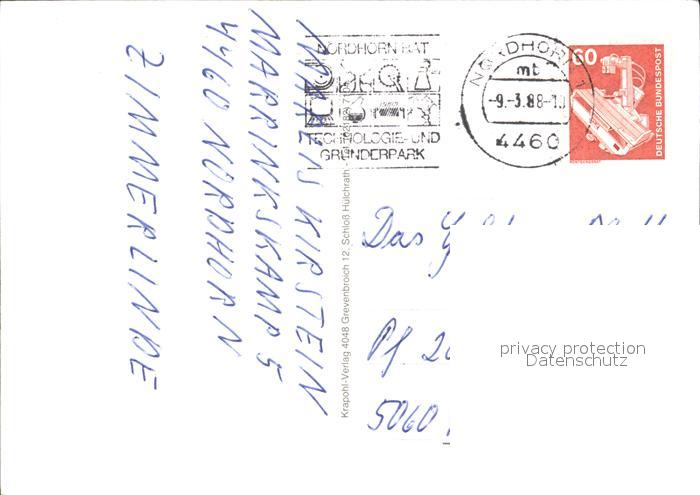 NORDHORN HAT
TECHNOLOGIE- UND
GRÜNDERPARK
NORDHORN 1
mb
-9.-3.88-10
4460
60
DEUTSCHE BUNDESPOST
KIRSTEIN
MARRINKSKAMP 5
4460 NORDHORN
ZIMMERLINDE
Krapohl-Verlag 4048 Grevenbroich 12, Schloß Hülchrath
Das
Pf 20
5060
privacy protection
Datenschutz